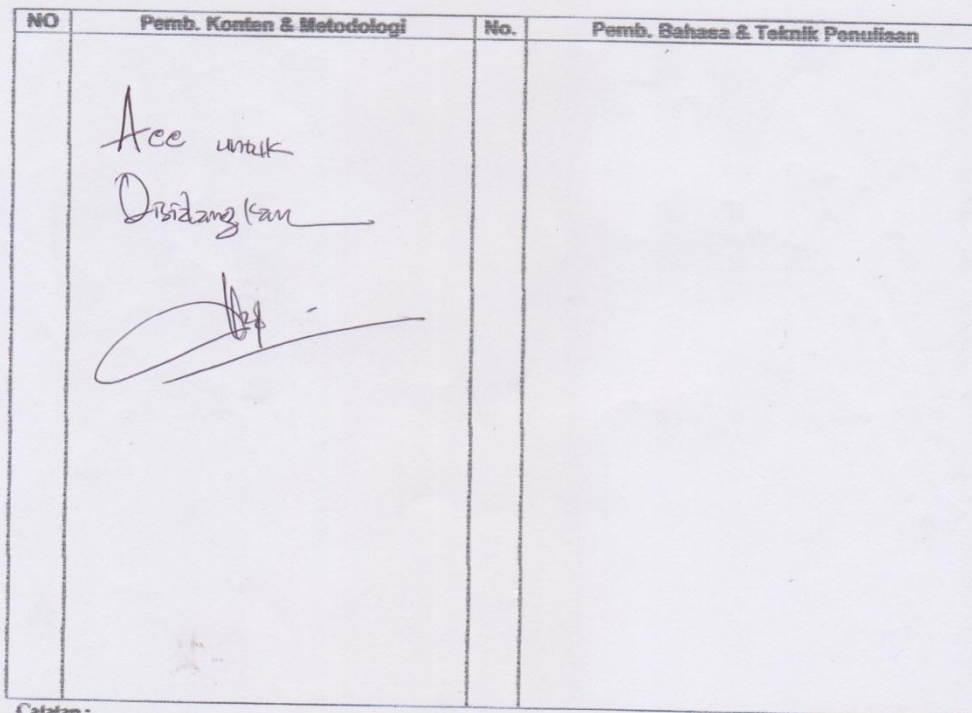 NO Pemb. Konten & Metodologi No. Pemb. Bahasa & Teknik Penulisan
Acc untuk
Disidangkan
Catatan :